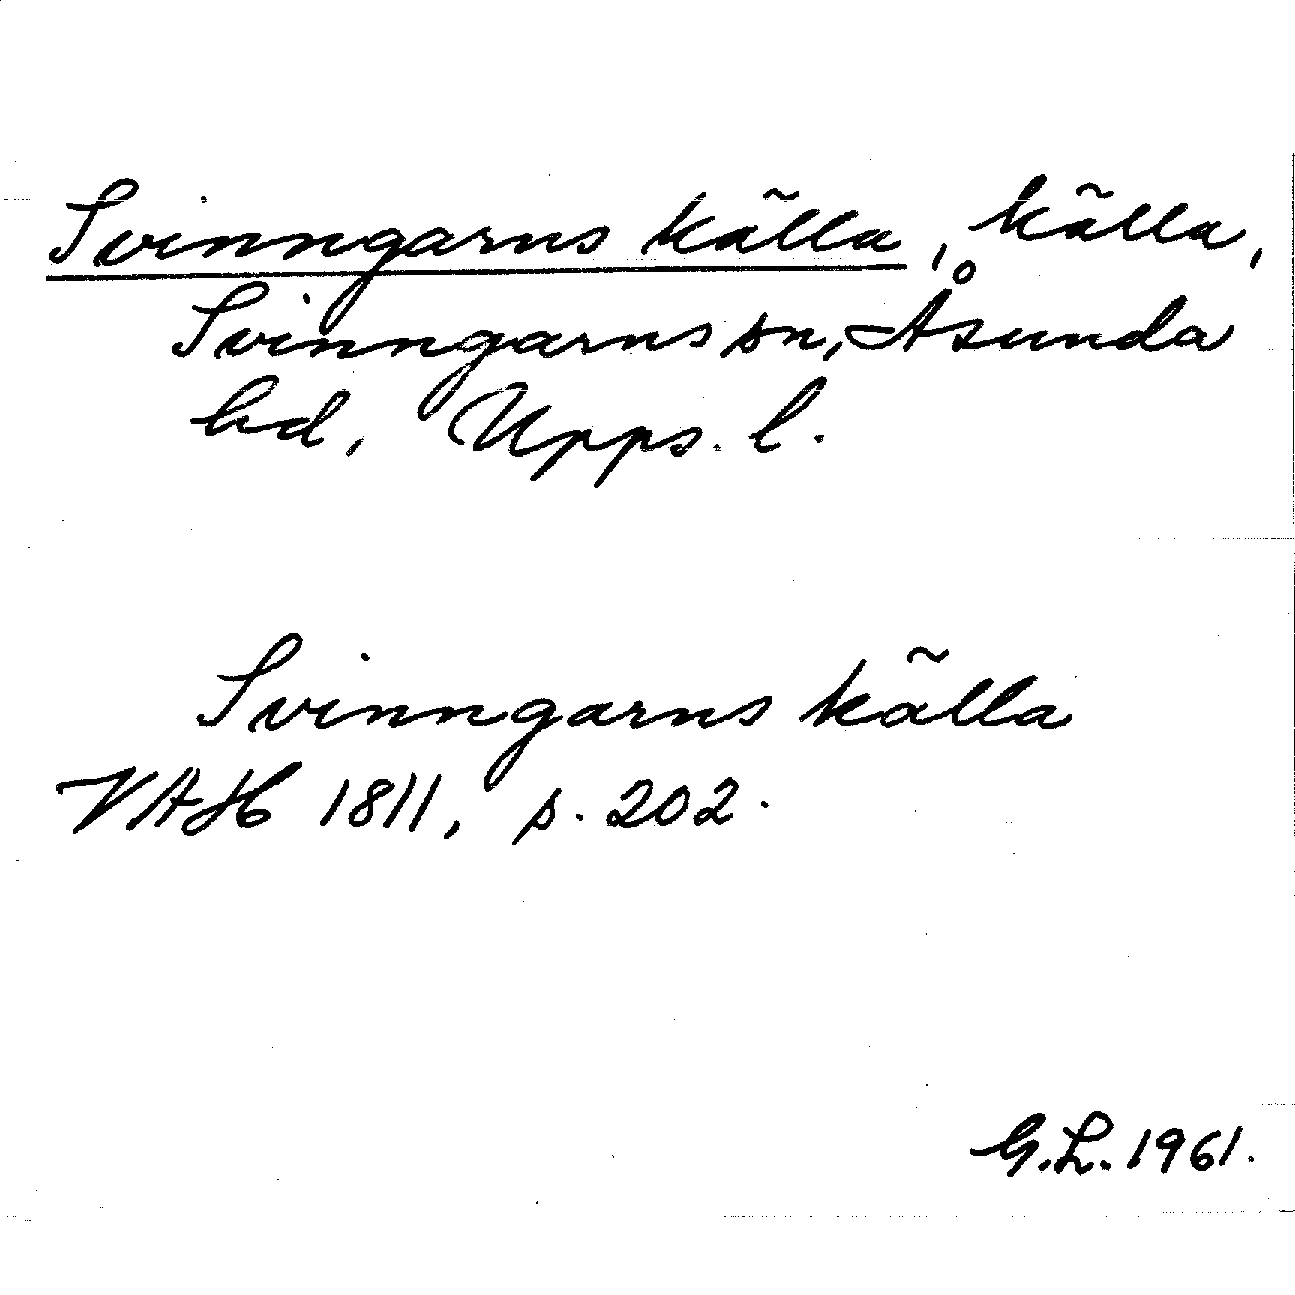 Svinngarns källa, källa,
Svinngarns sn, Åsunda
hd, Upps. l.
Svinngarns källa
VAH 1811, s. 202.
G.L. 1961.